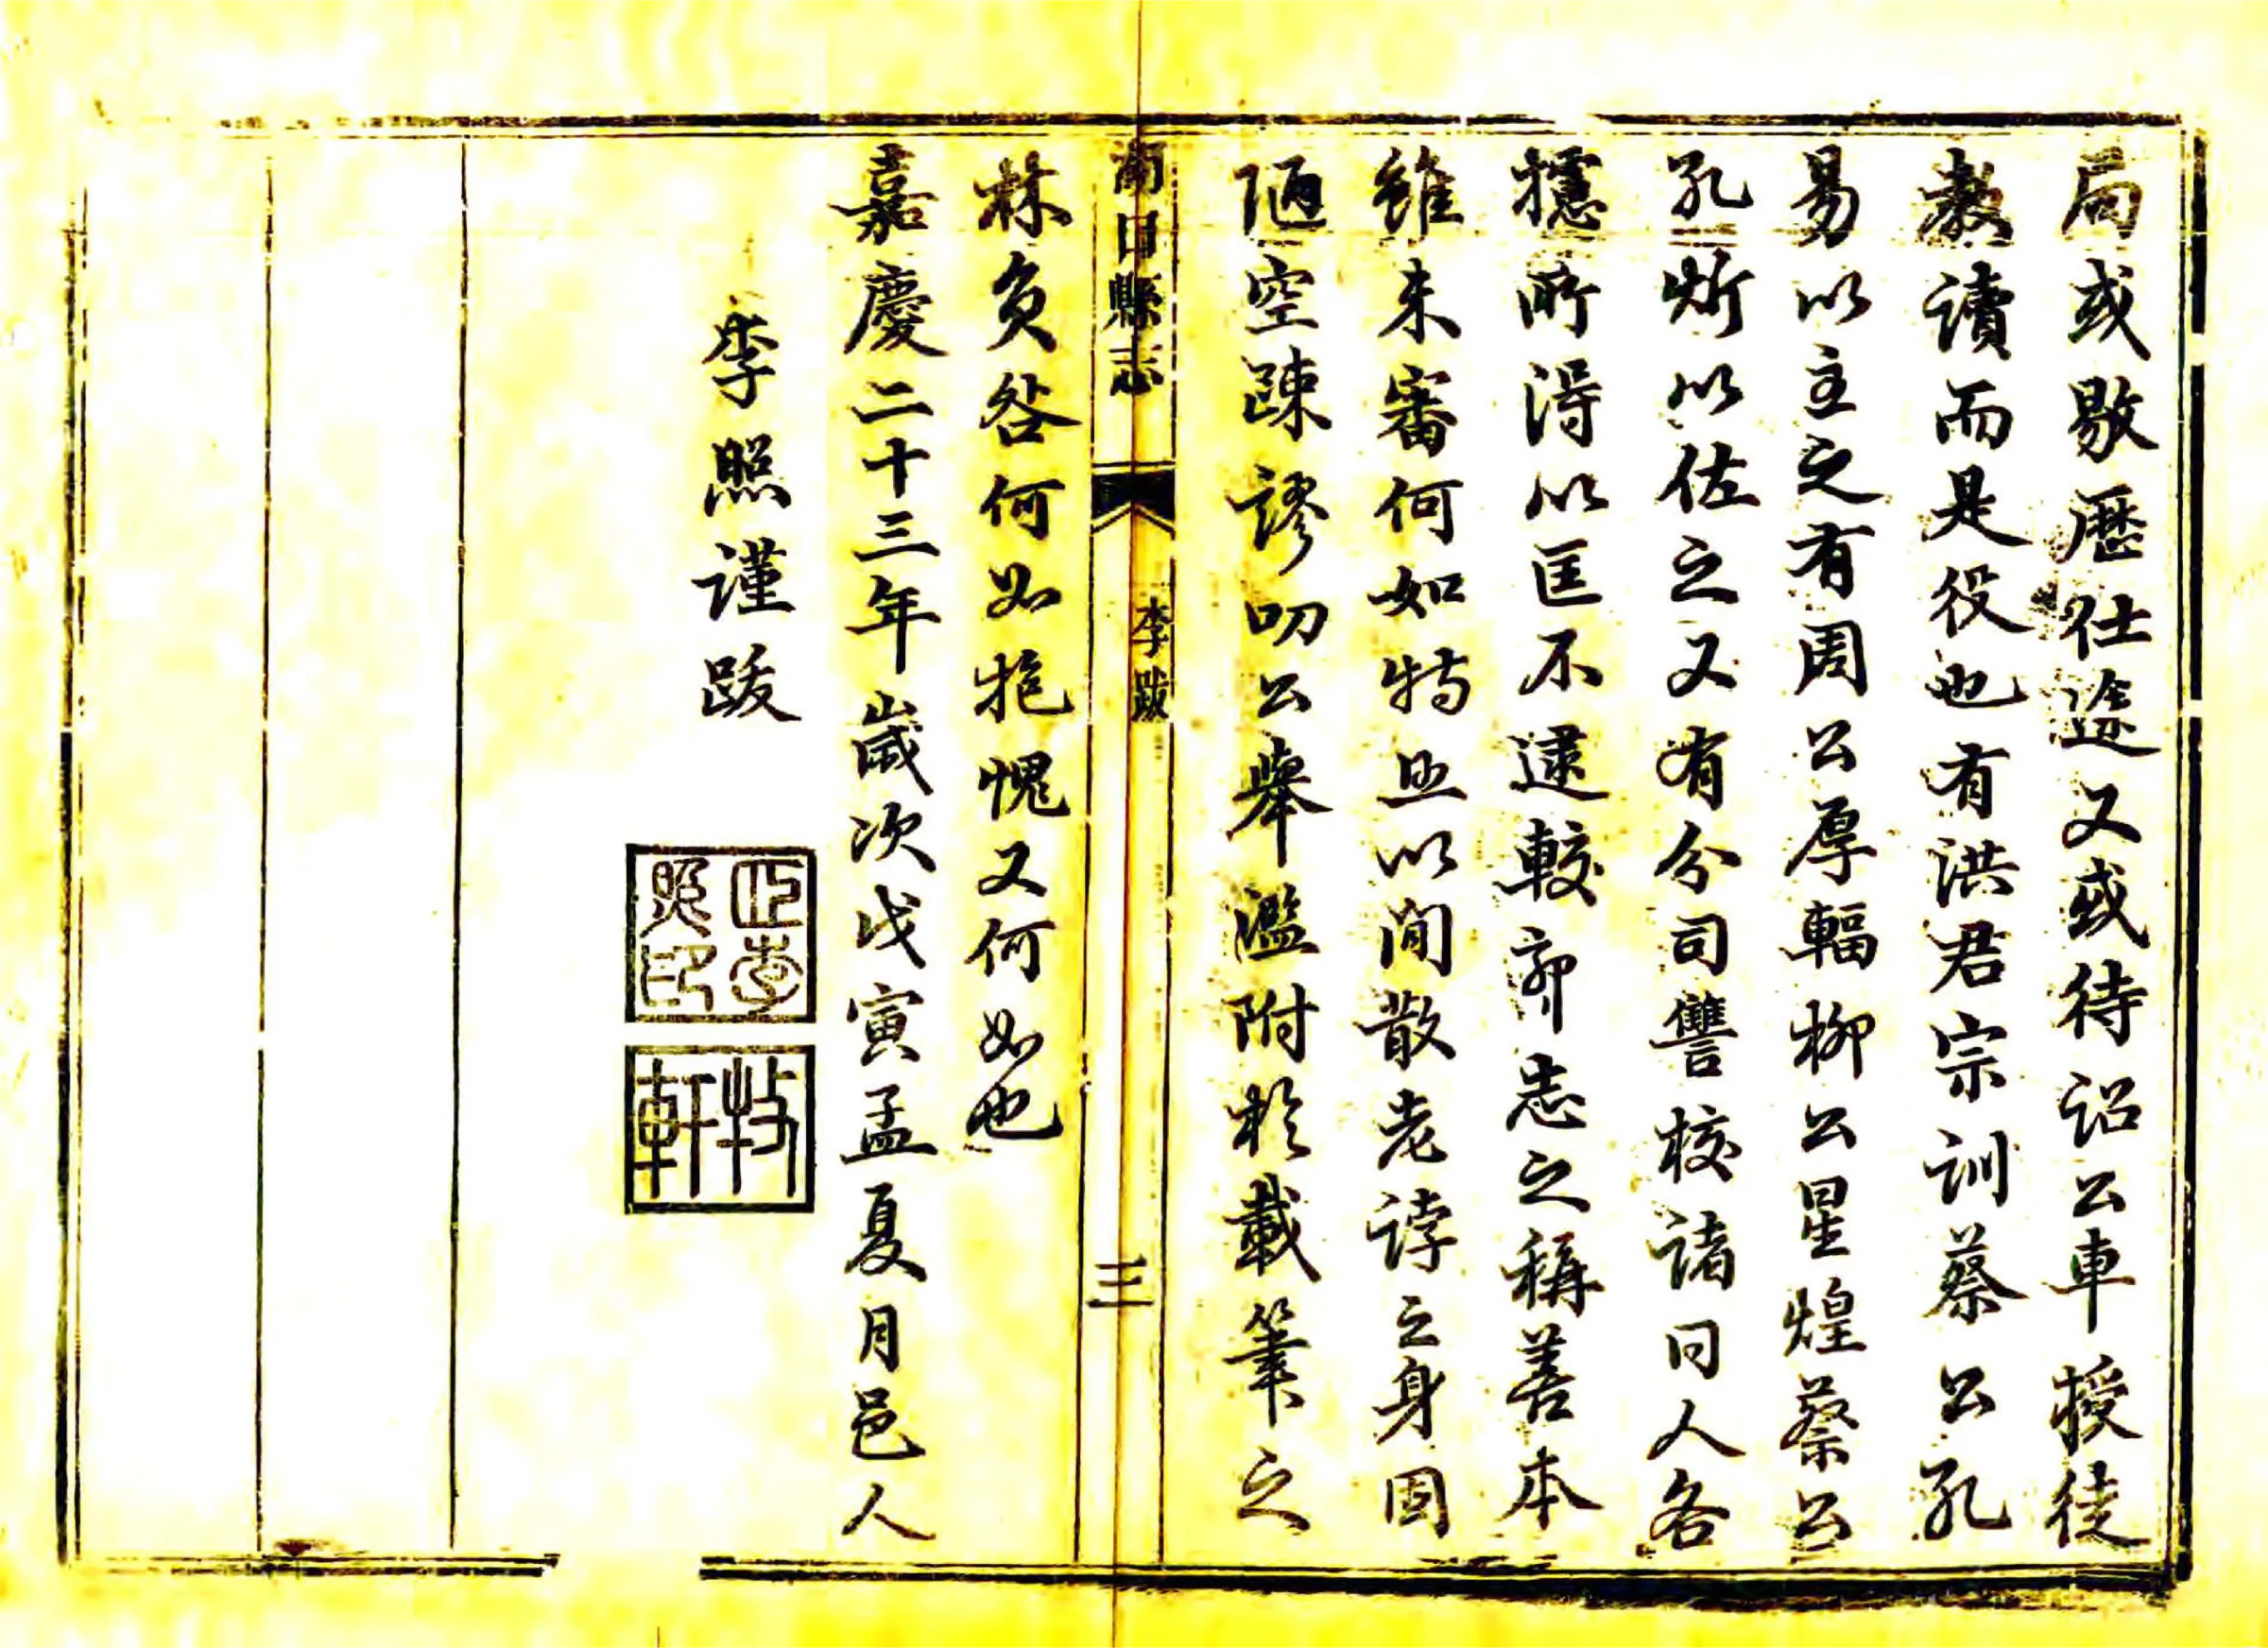 局或敭歷仕途又或待詔公車授徒
教讀而是役也有洪君宗訓蔡公孔
易以主之有周公厚輻柳公星煌蔡公
孔炘以佐之又有分司讐校諸同人各
攄所得以匡不逮較郭志之稱善本
雖未審何如特照以閒散老誖之身固
陋空踈謬叨公舉濫附於載筆之
林負咎何如抱愧又何如也
嘉慶二十三年歲次戊寅孟夏月邑人
李照謹跋
照印
軒
縣志
李跋
三